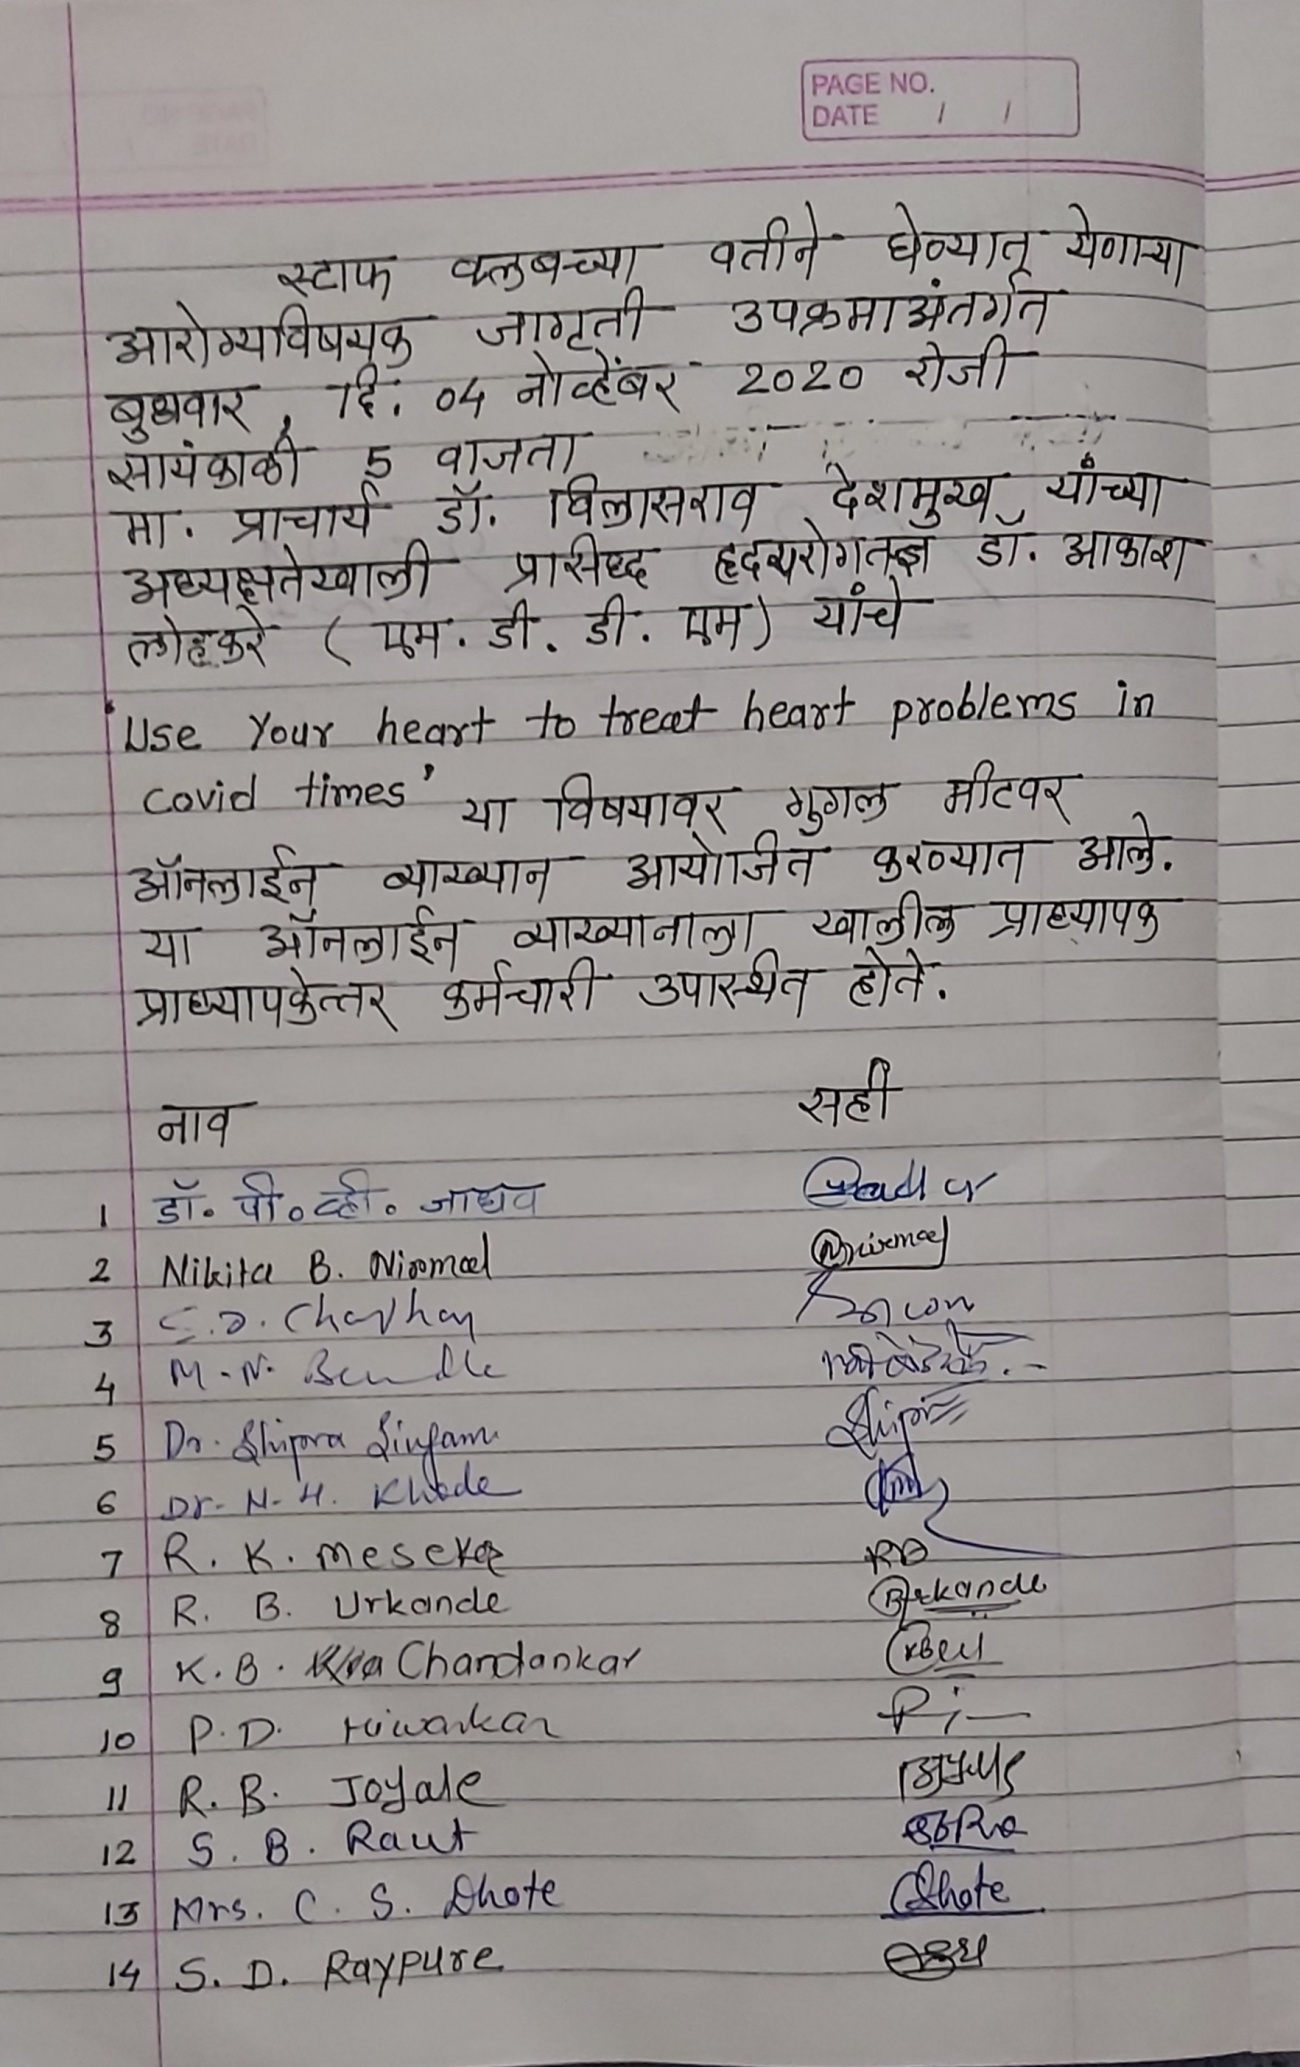 PAGE NO.
DATE / /
स्टाफ क्लबच्या वतीने घेण्यात येणाऱ्या
आरोग्यविषयक जागृती उपक्रमाअंतर्गत
बुधवार, दि. 04 नोव्हेंबर 2020 रोजी
सायंकाळी 5 वाजता
मा. प्राचार्य डॉ. विलासराव देशमुख यांच्या
अध्यक्षतेखाली प्रसिध्द हृदयरोगतज्ञ डॉ. आकाश
लोहकरे (एम. डी. डी. एम) यांचे
'Use Your heart to treat heart problems in
covid times' या विषयावर गुगल मीटवर
ऑनलाईन व्याख्यान आयोजित करण्यात आले.
या ऑनलाईन व्याख्यानाला खालील प्राध्यापक
प्राध्यापकेत्तर कर्मचारी उपस्थित होते.
नाव सही
1 डॉ. पी. व्ही. जाधव
2 Nikita B. Nirmal Nirmal
3 S.D. Chavhan
4 M. N.
5 Dr. Shipra Singam Shipra
6 Dr. N. H. Khode
7 R. K. Meseka
8 R. B. Urkande Urkande
9 K. B. Chandankar
10 P. D. Hiwarkar
11 R. B. Joyale
12 S. B. Raut
13 Mrs. C. S. Dhote Dhote
14 S. D. Raypure